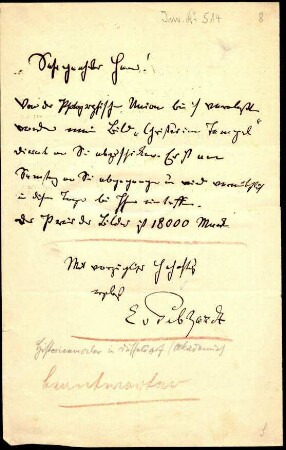 Inv. Nr 514 8
Sehr geehrter Herr!
Von der Photographischen Union bin ich veranlasst
worden mein Bild „Christus im Tempel“
direct an Sie abzuschicken. Es ist am
Samstag an Sie abgegangen u. wird vermuthlich
in diesen Tagen bei Ihnen eintreffen.
Der Preis des Bildes ist 18000 Mark.
Mit vorzüglicher Hochachtg
E. v. Gebhardt
Historienmaler in Düsseldorf (Akademie)
beantwortet